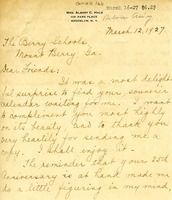 March 12, 1927.
The Berry Schools
Mount Berry, Ga.
Dear Friends:
It was a most delight-
ful surprise to find your souvenir
calendar waiting for me. I want
to complement you most highly
on its beauty, and to thank you
very heartily for sending me a
copy. I shall enjoy it.
The reminder that your 25th
Anniversary is at hand made me
do a little figuring in my mind,